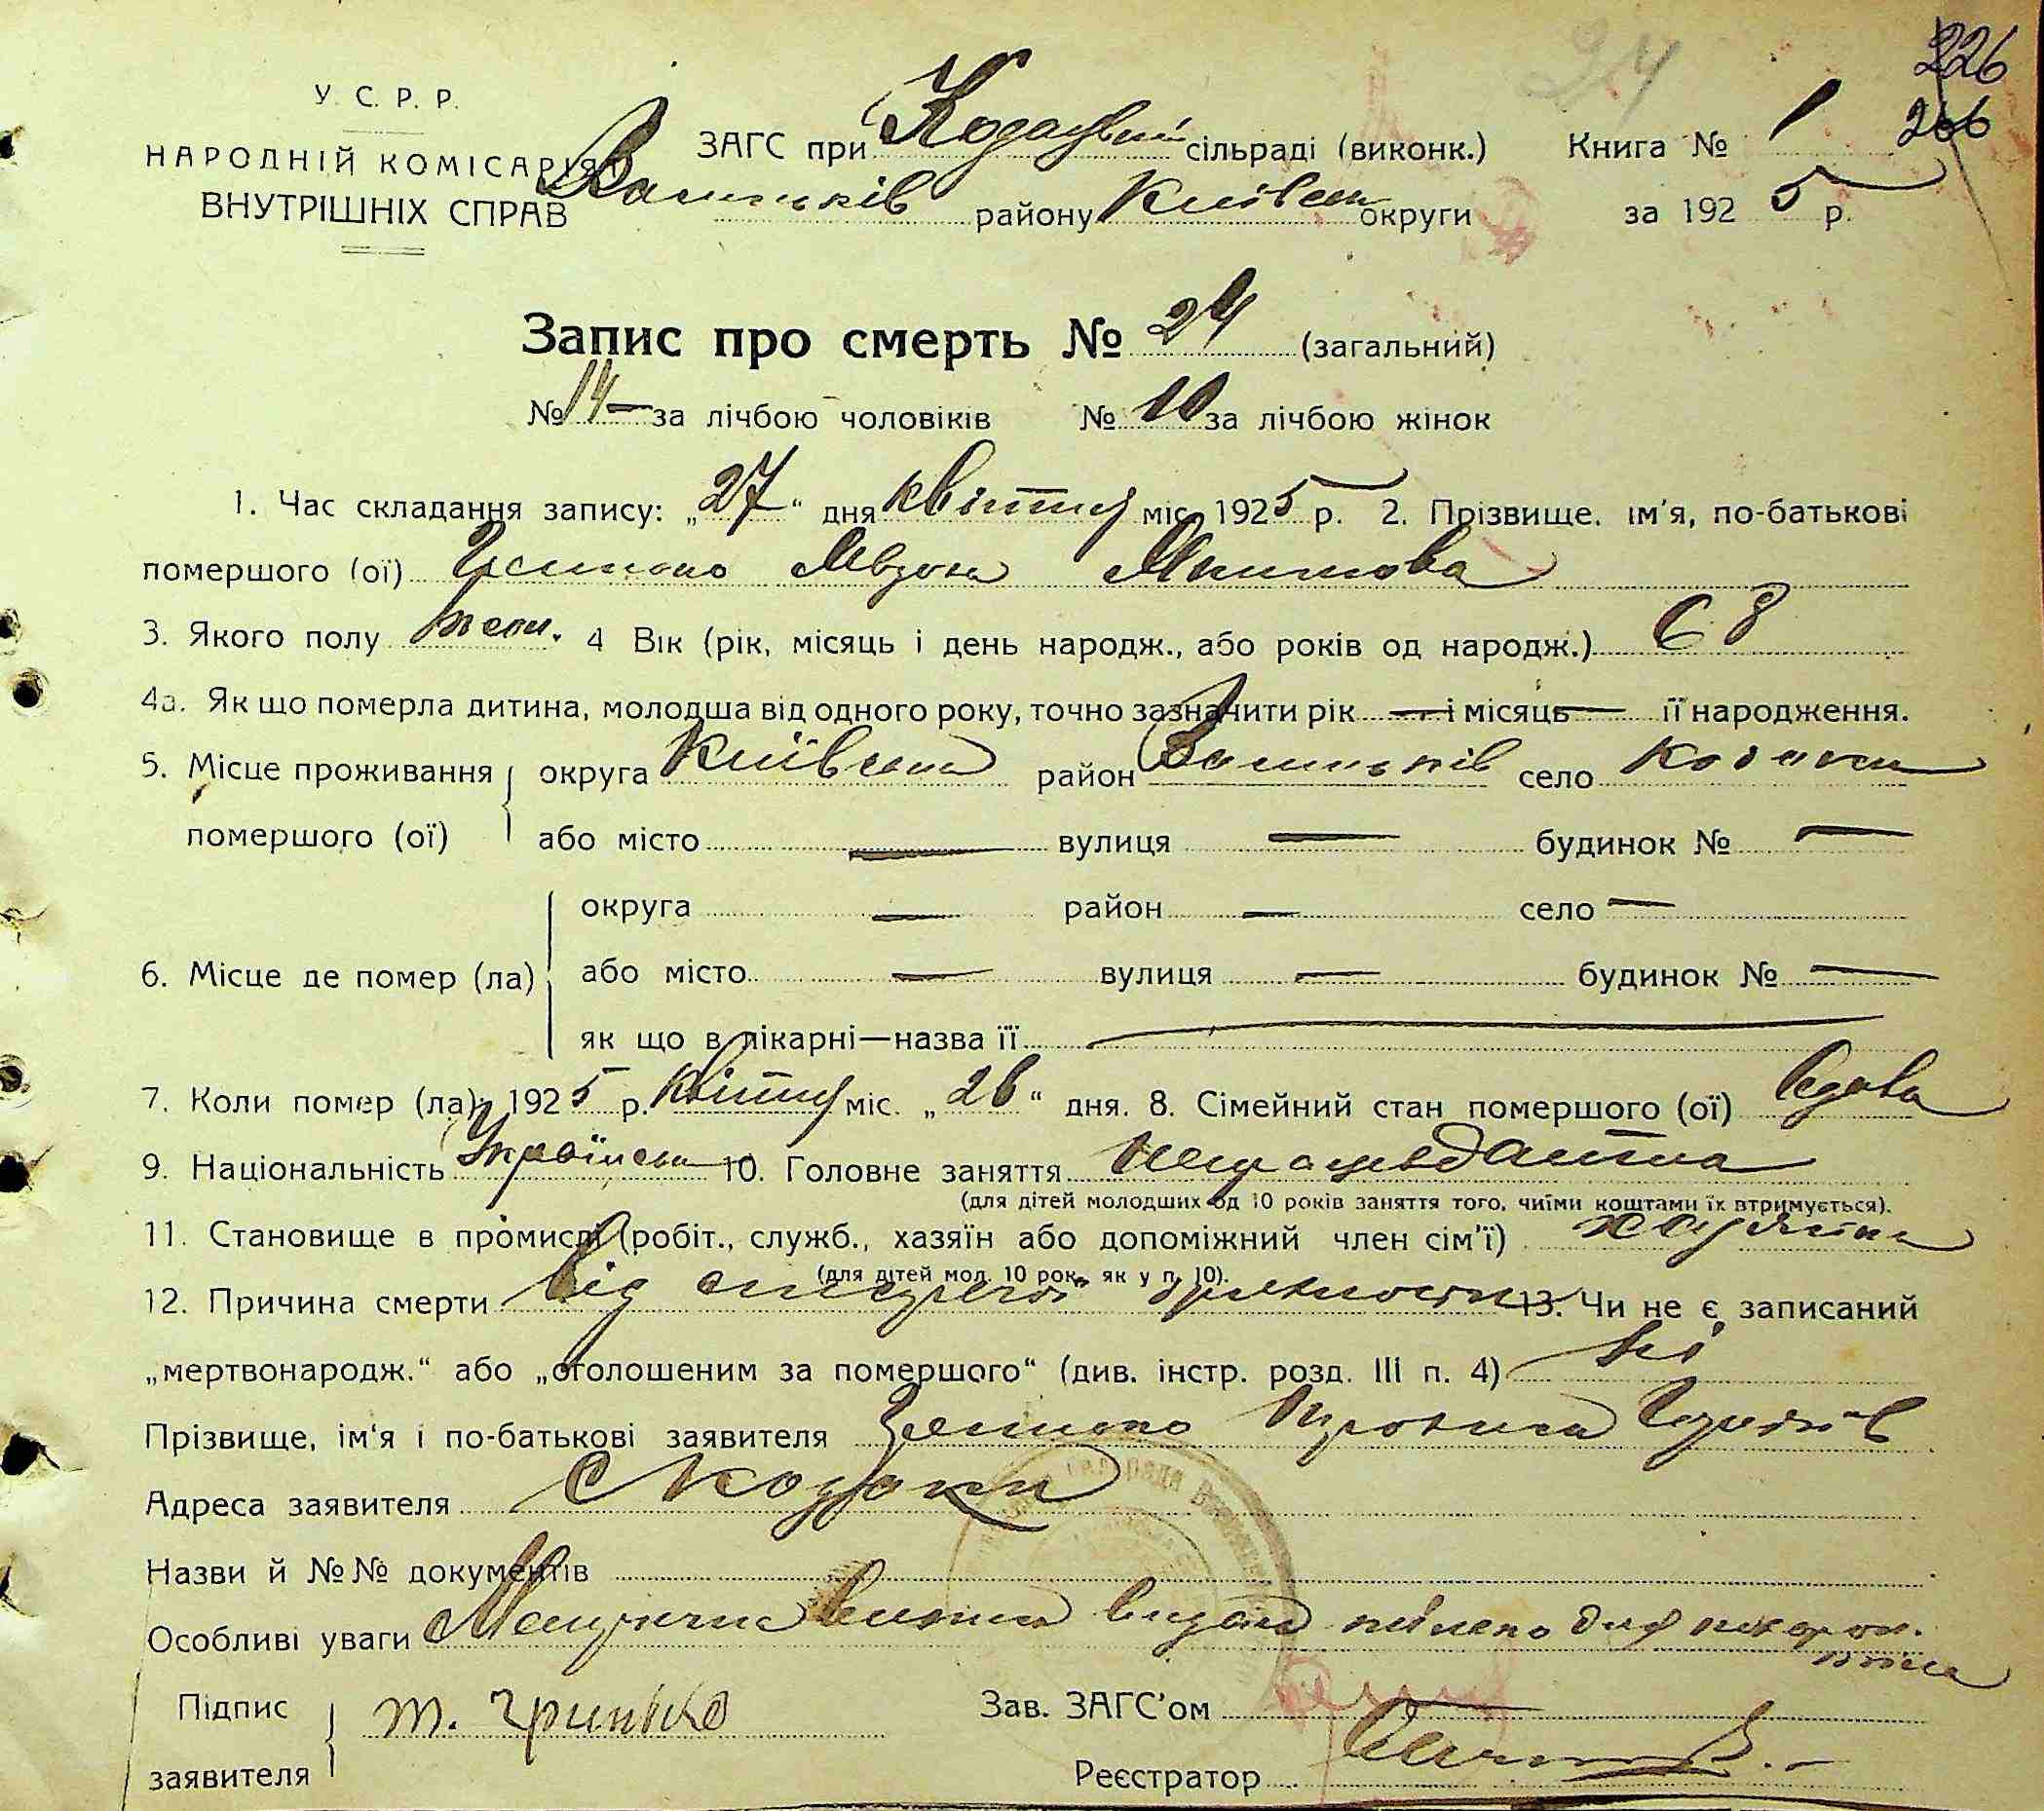 24
226
266
У. С. Р. Р.
НАРОДНІЙ КОМІСАРІЯТ
ВНУТРІШНІХ СПРАВ
ЗАГС при Кодацькій сільраді (виконк.) Книга № 1
Васильків району Київськ округи за 1925 р.
Запис про смерть № 24 (загальний)
№ 14 — за лічбою чоловіків № 10 за лічбою жінок
1. Час складання запису: „27" дня квітня міс. 1925 р. 2. Прізвище. ім'я, по-батькові
помершого (ої) Якимова
3. Якого полу жен. 4 Вік (рік, місяць і день народж., або років од народж.) 68
4а. Як що померла дитина, молодша від одного року, точно зазначити рік — і місяць — її народження.
5. Місце проживання округа Київська район Васильків село Кодаки
помершого (ої) або місто — вулиця — будинок № —
округа — район — село —
6. Місце де помер (ла) або місто — вулиця — будинок № —
як що в лікарні—назва її —
7. Коли помер (ла): 1925 р. квітня міс. „26" дня. 8. Сімейний стан помершого (ої) вдова
9. Національність Українська 10. Головне заняття
(для дітей молодших од 10 років заняття того, чиїми коштами їх втримується).
11. Становище в промислі (робіт., служб., хазяїн або допоміжний член сім'ї)
(для дітей мол. 10 рок., як у п. 10).
12. Причина смерти Від 13. Чи не є записаний
„мертвонародж." або „оголошеним за помершого" (див. інстр. розд. III п. 4) ні
Прізвище, ім'я і по-батькові заявителя
Адреса заявителя С Кодаки
Назви й №№ документів
Особливі уваги видана для похорон.
тіла
Підпис
заявителя
Зав. ЗАГС'ом
Реєстратор